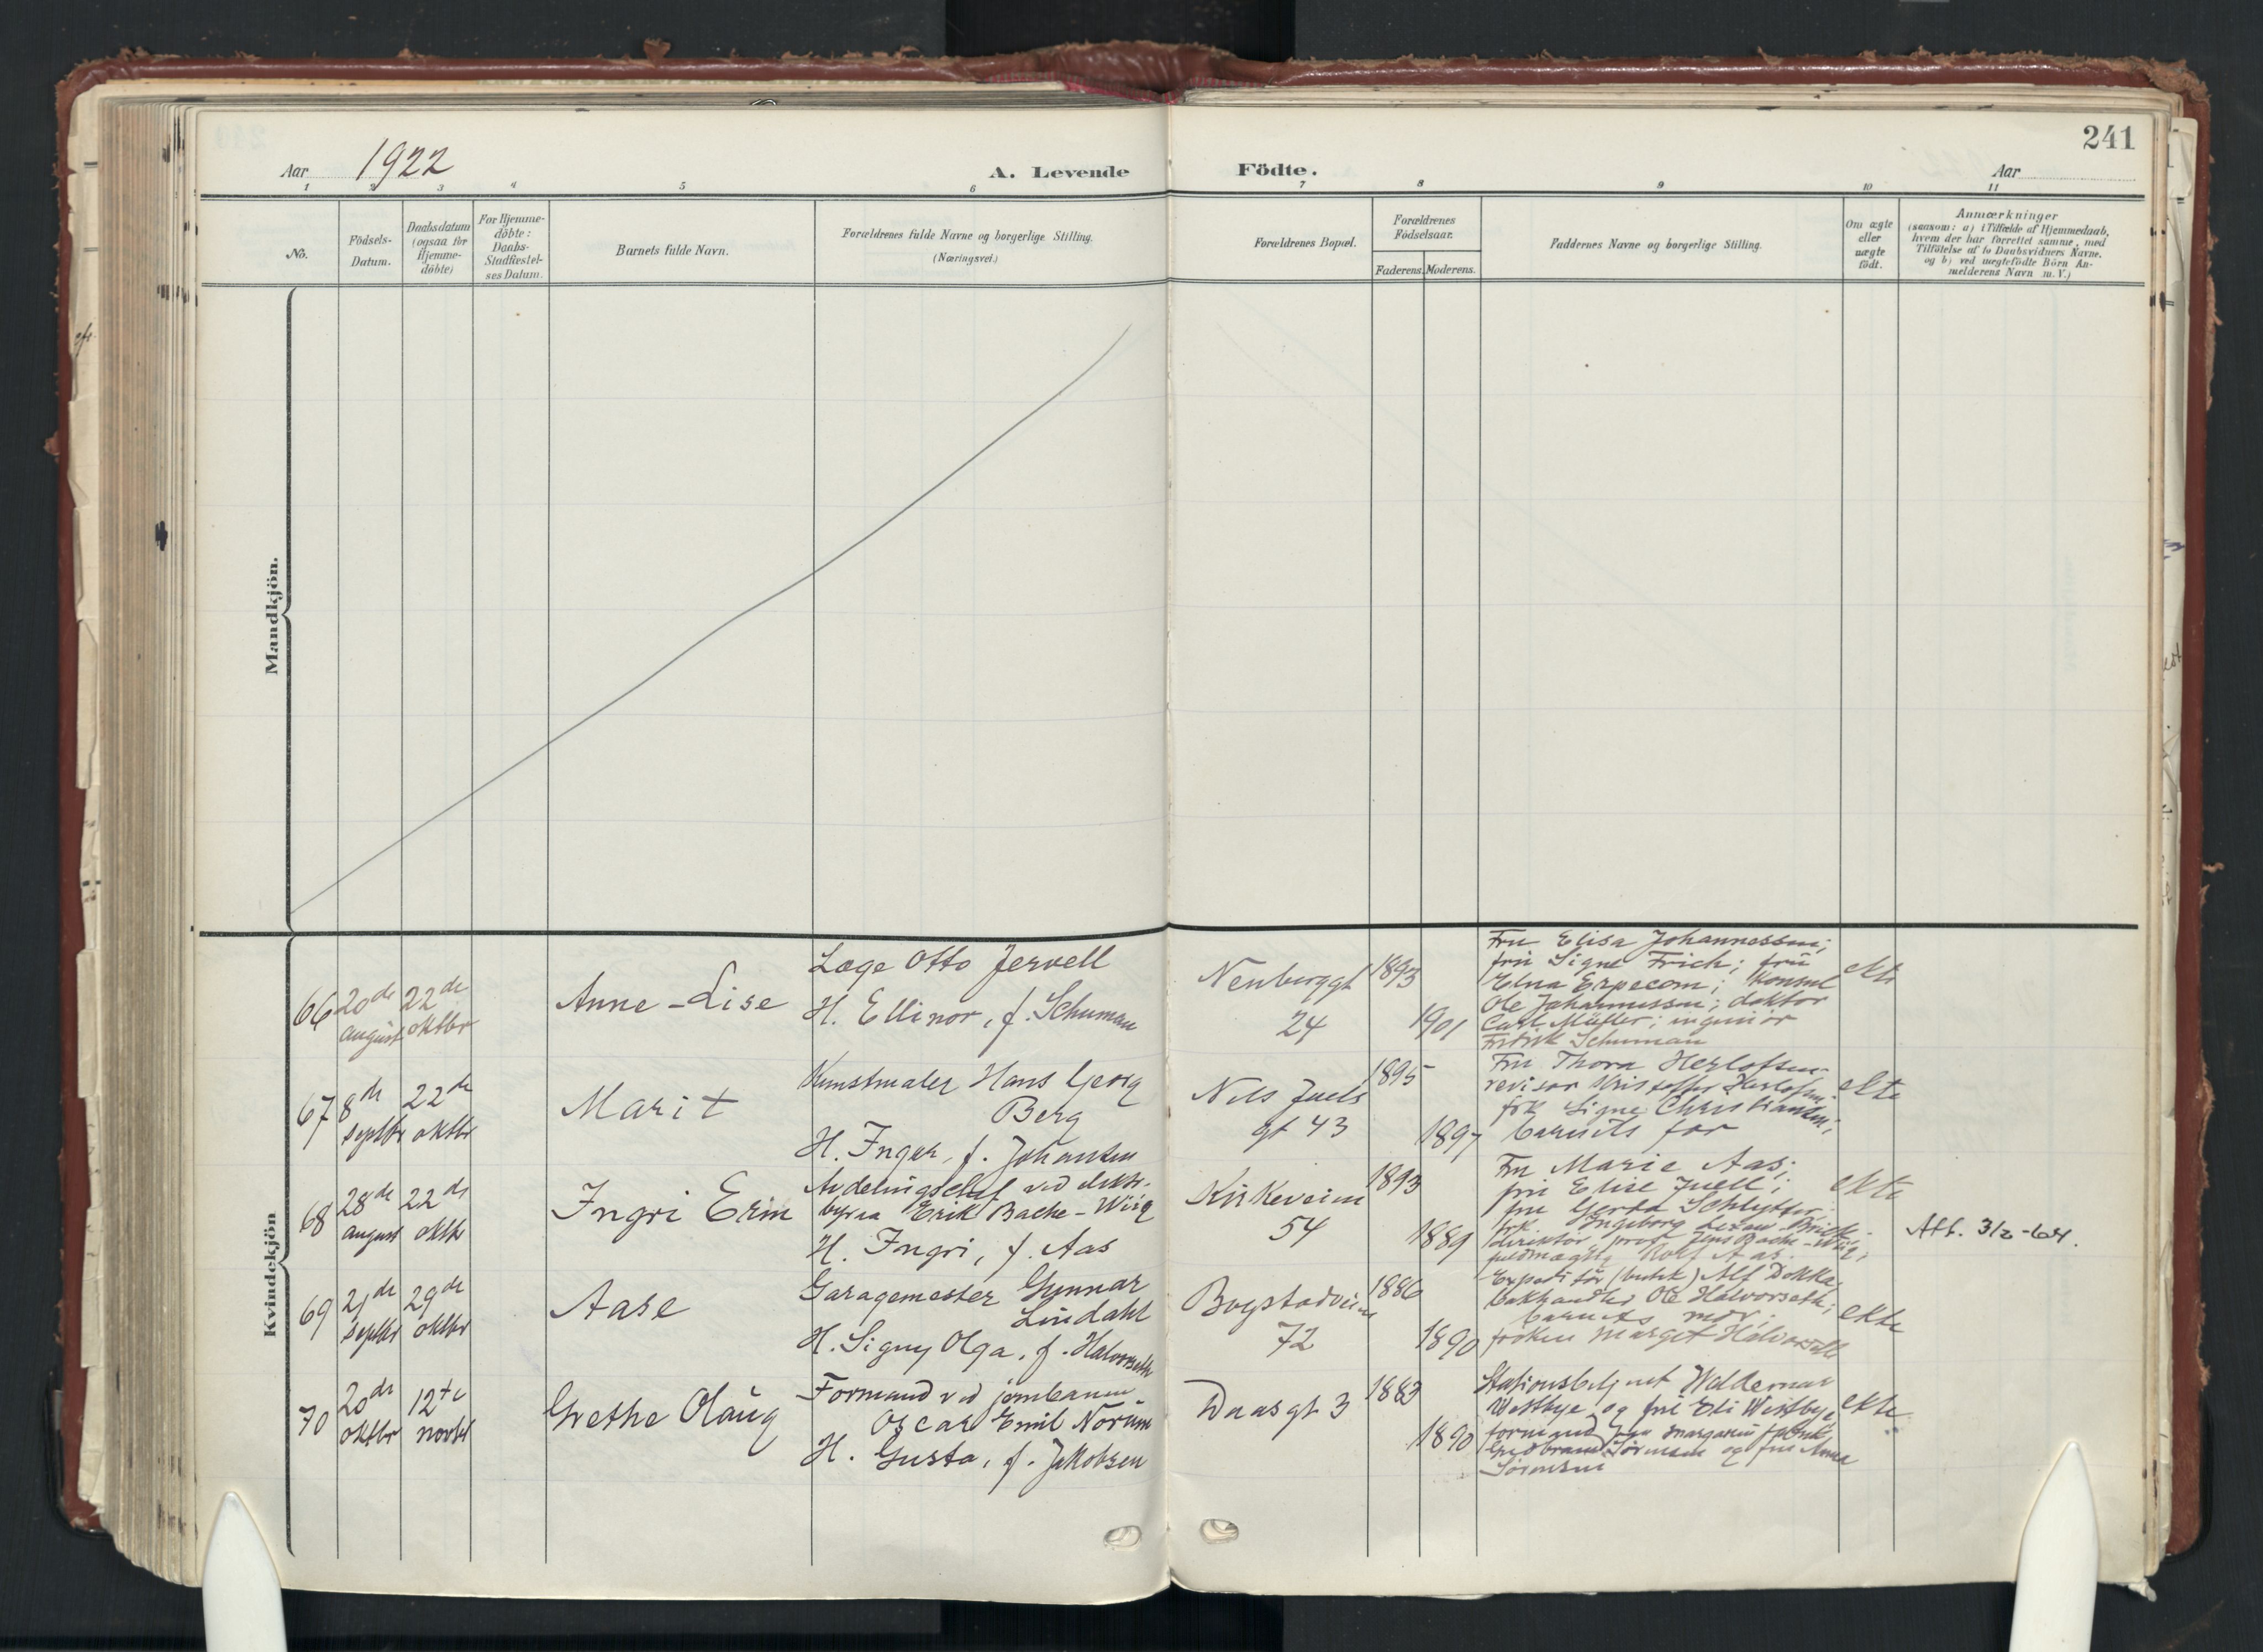 241
Aar 1922
A. Levende Födte.
Aar
1 2 3 4 5 6 7 8 9 10 11
No.
Födsels-
Datum.
Daabsdatum
(ogsaa for
Hjemme-
döbte)
For Hjemme-
döbte:
Daabs-
Stadfæstel-
ses Datum.
Barnets fulde Navn.
Forældrenes fulde Navne og borgerlige Stilling.
(Næringsvei.)
Forældrenes Bopæl.
Forældrenes
Födselsaar.
Faderens. Moderens.
Faddernes Navne og borgerlige Stilling.
Om ægte
eller
uægte
födt.
Anmærkninger
(saasom: a) i Tilfælde af Hjemmedaab,
hvem der har forrettet samme, med
Tilföielse af to Daabsvidners Navne,
og b) ved uægtefödte Börn An-
melderens Navn m. V.)
Mandkjön.
Kvindekjön
66
20de
august
22de
oktbr
Anne-Lise
Læge Otto Jervell
H. Ellinor, f. Schuman
Neuberggt
24
1893
1901
Fru Elisa Johannessen;
fru Signe Frich; fru
Elna Expecom; Konsul
Ole Johannessen; doktor
Carl Müller; ingeniör
Fridrik Schuman
ekte
67
8de
septbr
22de
oktbr
Marit
Kunstmaler Hans Georg
Berg
H. Inger, f. Johansen
Nils Juels
gt 43
1895
1897
Fru Thora Herlofsen
revisor Kristoffer Herlofsen
frk Signe Christiansen;
barnets far
ekte
68
28de
august
22de
oktbr
Ingri Erin
Avdelingschef ved elektr.
byraa Erik Bache-Wiig
H. Ingri, f. Aas
Kirkeveien
54
1893
1889
Fru Marie Aas;
fru Elise Juell;
fru Gerda Schlytter;
frk. Ingeborg
direktör prof Jens Bache-Wiig;
fuldmægtig Rolf Aas.
ekte
Att. 3/2-64.
69
21de
septbr
29de
oktbr
Aase
Garagemester Gunnar
Lindahl
H. Signy Olga, f. Halvorseth
Bogstadveien
72
1886
1890
Expeditör (butik) Alf Dokka;
Ole Halvorseth;
barnets mor;
fröken Marget Halvorseth
ekte
70
20de
oktbr
12te
novbr
Grethe Olaug
Formand ved jernbanen
Oscar Emil Norum
H. Gusta, f. Jakobsen
Daasgt 3
1883
1890
Stationsbetjent Waldemar
Westbye og fru Eli Westbye
formand
Gudbrand Sörensen og fru Anna
Sörensen
ekte